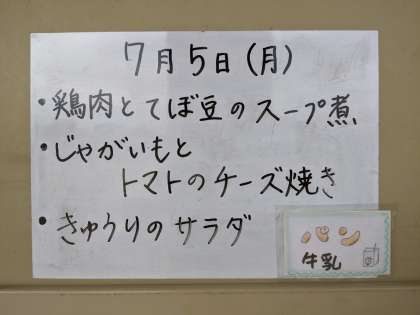 7月5日(月)
・鶏肉とてぼ豆のスープ煮
・じゃがいもと
トマトのチーズ焼き
・きゅうりのサラダ
パン
牛乳